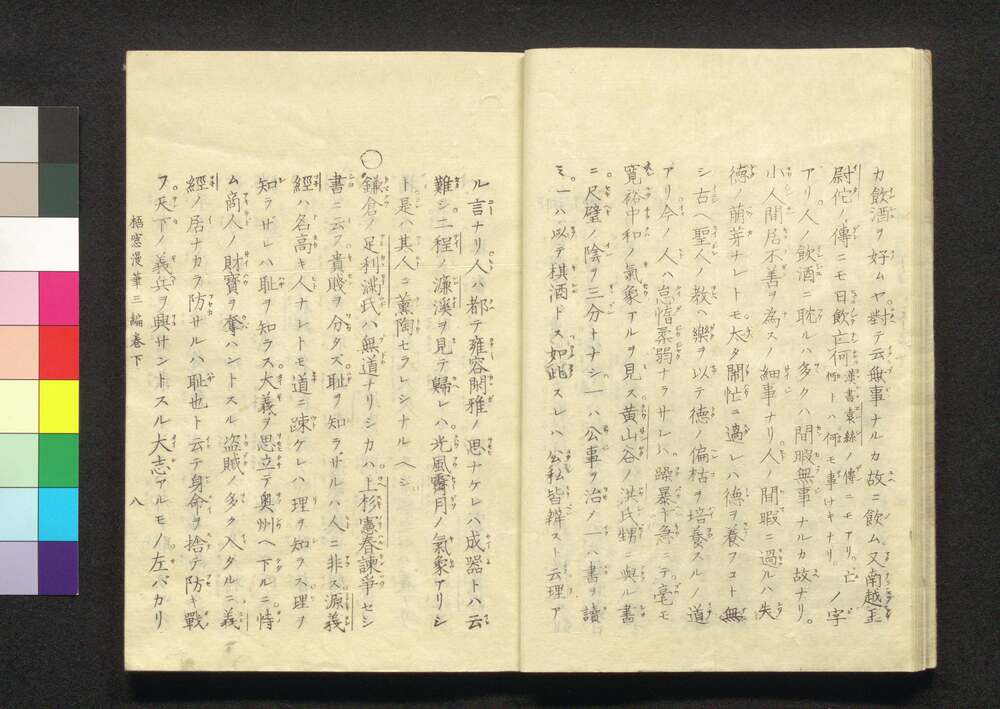 カ飲酒ヲ好ムヤ對テ云無事ナルカ故ニ飲ム又南越王
尉佗ノ傳ニモ日飲亡何漢書袁絲ノ傳ニモアリ亡何トハ何モ事ナキナリノ字
アリ人ノ飲酒ニ耽ルハ多クハ閒暇無事ナルカ故ナリ
小人閒居不善ヲ為スノ細事ナリ人ノ閒暇ニ過ルハ失
徳ノ萌芽ナレトモ太タ鬧忙ニ過レハ徳ヲ養フコト無
シ古ヘ聖人ノ教ヘ樂ヲ以テ徳ノ偏枯ヲ培養スルノ道
アリ今ノ人ハ怠惰柔弱ナラサレハ躁暴卞急ニテ毫モ
寛裕中和ノ氣象アルヲ見ス黄山谷ノ洪氏甥ニ與ル書
ニ尺璧ノ陰ヲ三分トナシ一ハ公事ヲ治ノ一ハ書ヲ讀
ミ一ハ以テ棋酒ドス如此スレハ公私皆辨スト云理ア
ル言ナリ人ハ都テ雍容閑雅ノ思ナケレハ成器トハ云
難シ二程ノ濂溪ヲ見テ歸レハ光風霽月ノ氣象アリシ
ト是ハ其人ニ薫陶セラレシナルヘシ
○鎌倉ノ足利満氏ハ無道ナリシカハ上杉憲春諫爭セシ
書ニ云フ貴賤ヲ分タズ耻ヲ知ラサルハ人ニ非ス源義
經ハ名高キ人ナレトモ道ニ疎ケレハ理ヲ知ラス理ヲ
知ラザレハ耻ヲ知ラス大義ヲ思立テ奥州ヘ下ルニ恃
ム商人ノ財寳ヲ奪ハントスル盗賊ノ多ク入タルニ義
經ノ居ナカラ防サルハ耻也ト云テ身命ヲ捨テ防キ戰
フ天下ノ義兵ヲ興サントスル大志アルモノ左バカリ
梧窓漫筆三編巻下
八